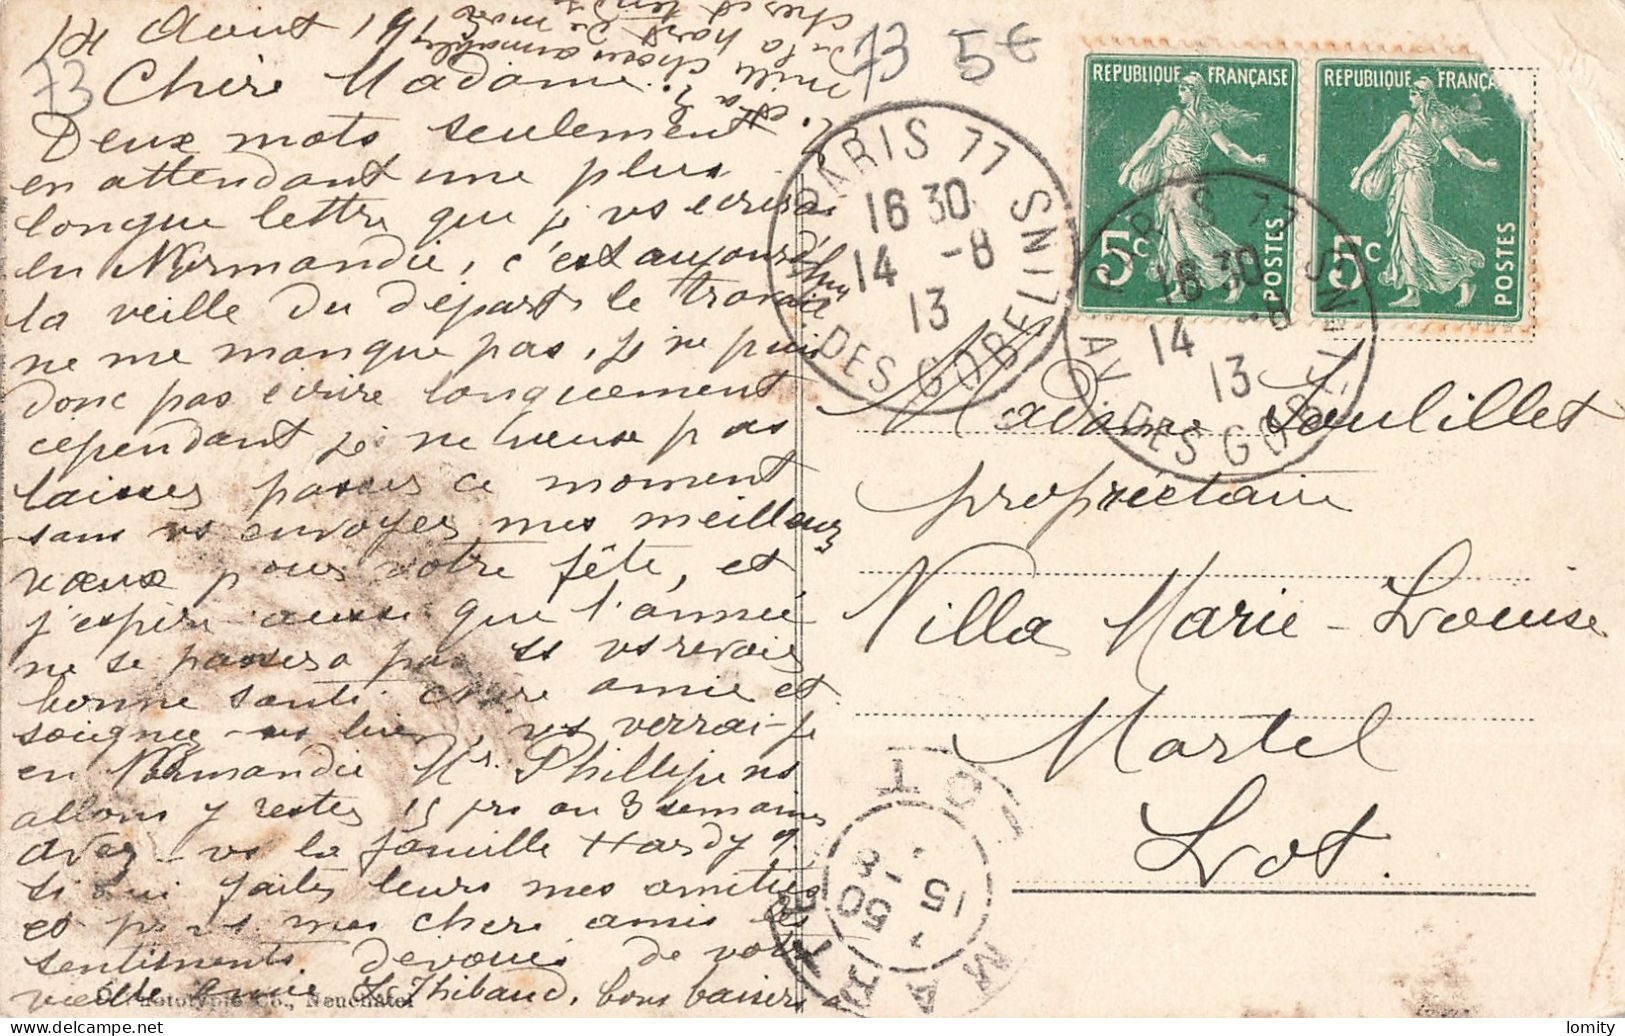 14 Août 19
Chère Madame
Deux mots seulement
en attendant une plus
longue lettre que je vs ecrirai
en Normandie, c'est aujourd'hui
la veille du départ, le travail
ne me manque pas, je ne puis
donc pas ecrire longuement
cependant je ne veux pas
laisser passer ce moment
sans vs envoyer mes meilleurs
vœux pour votre fête, et
j'espère aussi que l'année
ne se passera pas ss vs revoir
bonne santé chère amie et
soignez-vs bien, vs verrai-je
en Normandie Mr. Phillipe ns
allons y rester 15 jrs ou 3 semaines
avez-vs la famille Hardy?
si oui faites leurs mes amitiés
et pr vs mes chers amis les
sentiments devoués de votre
vieille amie L. Thibaud, bons baisers à
mille choses aimables
de la part de
73
73 5€
REPUBLIQUE FRANÇAISE
5c POSTES
REPUBLIQUE FRANÇA
5c POSTES
PARIS 77
16 30
14 -8
13
AV. DES GOBELINS
PARIS 77
16 30
14 -8
13
AV. DES GOBELINS
Madame Soulillet
propriétaire
Villa Marie-Louise
Martel
Lot.
MARTEL
LOT
15 -8
Phototypie Co., Neuchatel
lomity